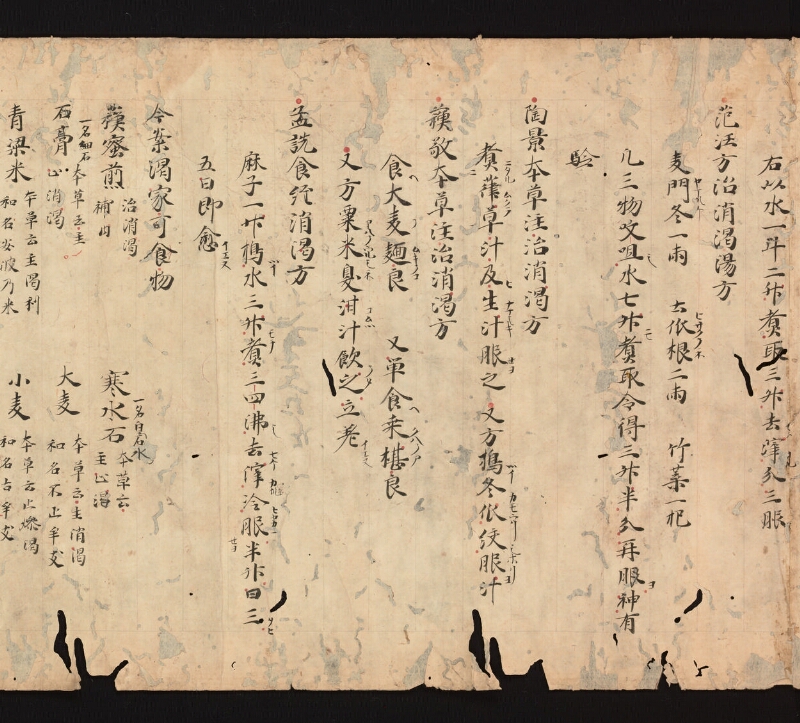 右以水一斗二升煮取三升去滓分三服
范汪方治消渇湯方
麦門冬一兩 土依根二兩 竹葉一把
凡三物㕮咀水七升煮取令得三升半分再服神有
驗
陶景本草注治消渇方
煮葦草汁及生汁服之 又方搗冬依絞服汁
蘓敬本草注治消渇方
食大麦麺良 又単食桒椹良
又方粟米臰泔汁飲之立差
孟詵食経消渇方
麻子一升搗水三升煮三四沸去滓冷服半升日三
五日即愈
今案渇家可食物
蘓蜜煎 治消渇補内 寒水石 一名白石水 本草云主止渇
石膏 一名細石 本草云主止消渇 大麦 本草云主消渇 和名不止牟支
青梁米 本草云主渇利 和名安波乃米 小麦 本草云止燥渇 和名古牟支